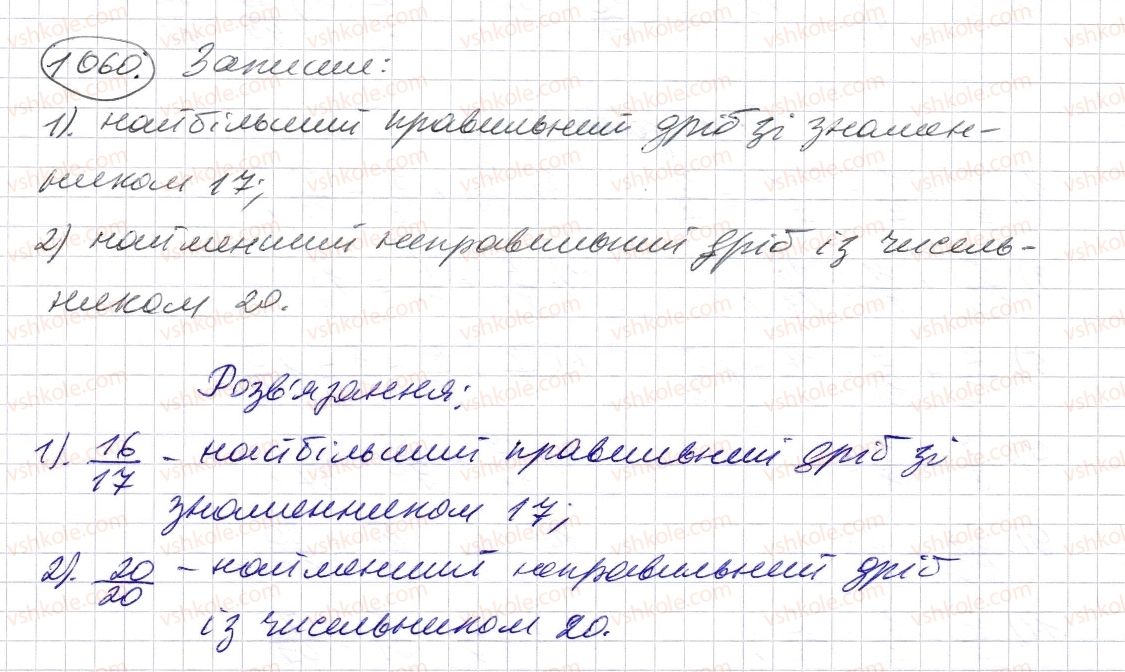 1060. Запиши:
1). найбільший правильний дріб зі знамен-
ником 17;
2) найменший неправильний дріб із чисель-
ником 20.
Розв'язання:
1). 16/17 - найбільший правильний дріб зі
знаменником 17;
2). 20/20 - найменший неправильний дріб
із чисельником 20.